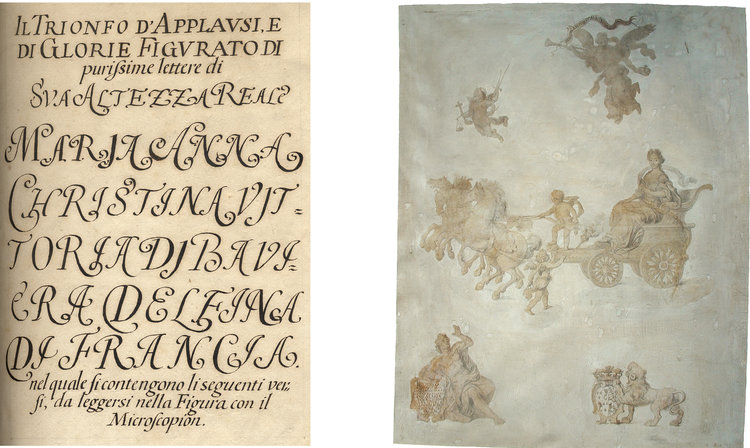 IL TRIONFO D'APPLAVSI, E
DI GLORIE FIGVRATO DI
puriſsime lettere di
SVA ALTEZZA REALE
MARIA ANNA
CHRISTINA VIT=
TORIA DI BAVI=
ERA DELFINA
DI FRANCIA.
nel quale ſi contengono li seguenti ver,
ſi, da leggersi nella Figura con il
Microscopion.